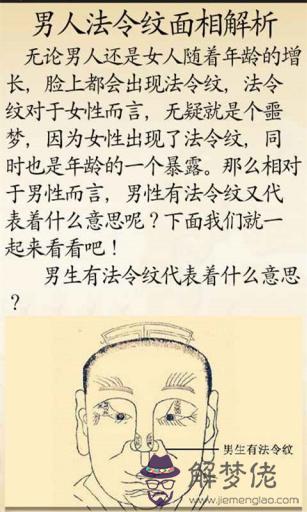 男人法令纹面相解析
无论男人还是女人随着年龄的增
长，脸上都会出现法令纹，法令
纹对于女性而言，无疑就是个噩
梦，因为女性出现了法令纹，同
时也是年龄的一个暴露。那么相对
于男性而言，男性有法令纹又代
表着什么意思呢？下面我们就一
起来看看吧！
男生有法令纹代表着什么意思
？
男生有法令纹
解梦佬
www.jiemenglao.com